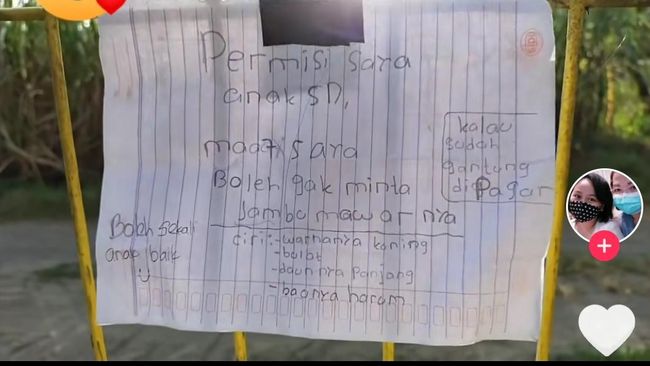 Permisi saya
anak SD,
maaf saya
Boleh gak minta
Jambu mawar nya
ciri:- warnanya kuning
- bulat
- daunnya panjang
- baonya harum
kalau
sudah
gantung
di Pagar
Boleh sekali
anak baik